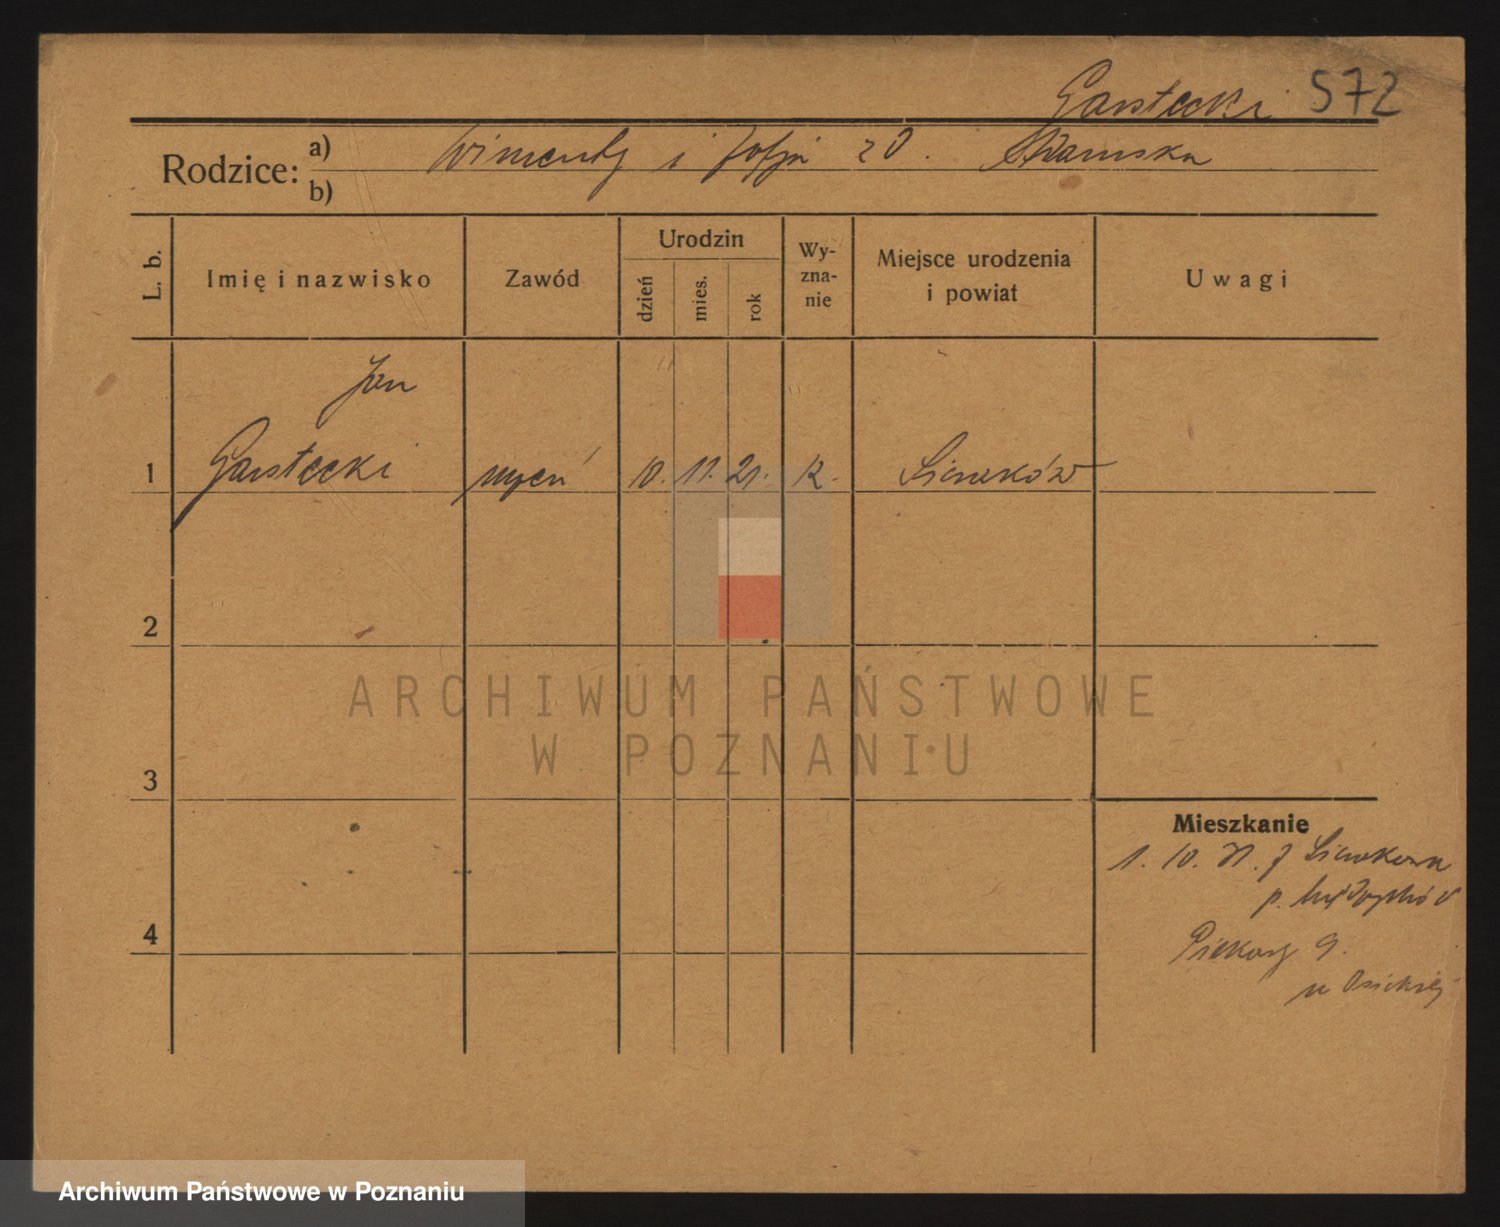 Garstecki 572
Rodzice: a) Wincenty i Zofja z d. Adamska
b)
L. b.
Imię i nazwisko
Zawód
Urodzin
dzień
mies.
rok
Wy-
zna-
nie
Miejsce urodzenia
i powiat
Uwagi
Jan
1 Garstecki uczeń 10. 11. 21. k. Sieraków
2
3
4
Mieszkanie
1. 10. z Sierakowa
p. Międzychód
Piekary 9.
u
ARCHIWUM PAŃSTWOWE
W POZNANIU
Archiwum Państwowe w Poznaniu